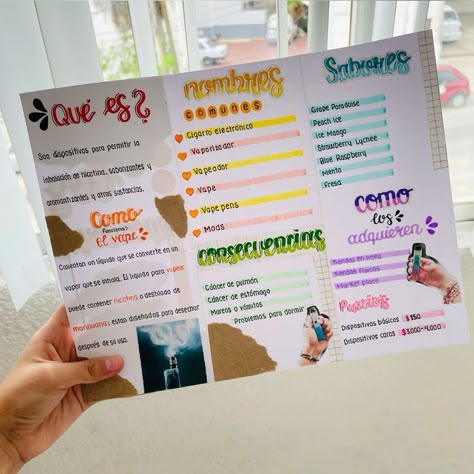 Qué es?
Son dispositivos para permitir la
inhalación de nicotina, saborizantes y
aromantizantes y otras sustancias.
Como
funciona?
El vape
Calientan un líquido que se convierte en un
vapor que se inhala. El líquido para vapear
puede contener nicotina o destilado de
marihuana; estan diseñados para desechar
después de su uso.
nombres
comunes
Cigarro electrónico
Vaporizador
Vapeador
Vape
Vape pens
Mods
consecuencias
Cáncer de pulmón
Cáncer de estómago
Mareos o vómitos
Problemas para dormir
Sabores
Grape Paradaise
Peach Ice
Ice Mango
Strawberry Lychee
Blue Raspberry
Menta
Fresa
como
los
adquieren
Tiendas en línea
Tiendas físicas
Market place
Precios
Dispositivos básicos $150
Dispositivos caros $3,000-4,000